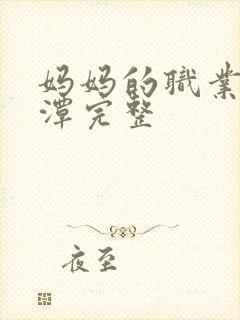 妈妈的职业
潭完整
夜至